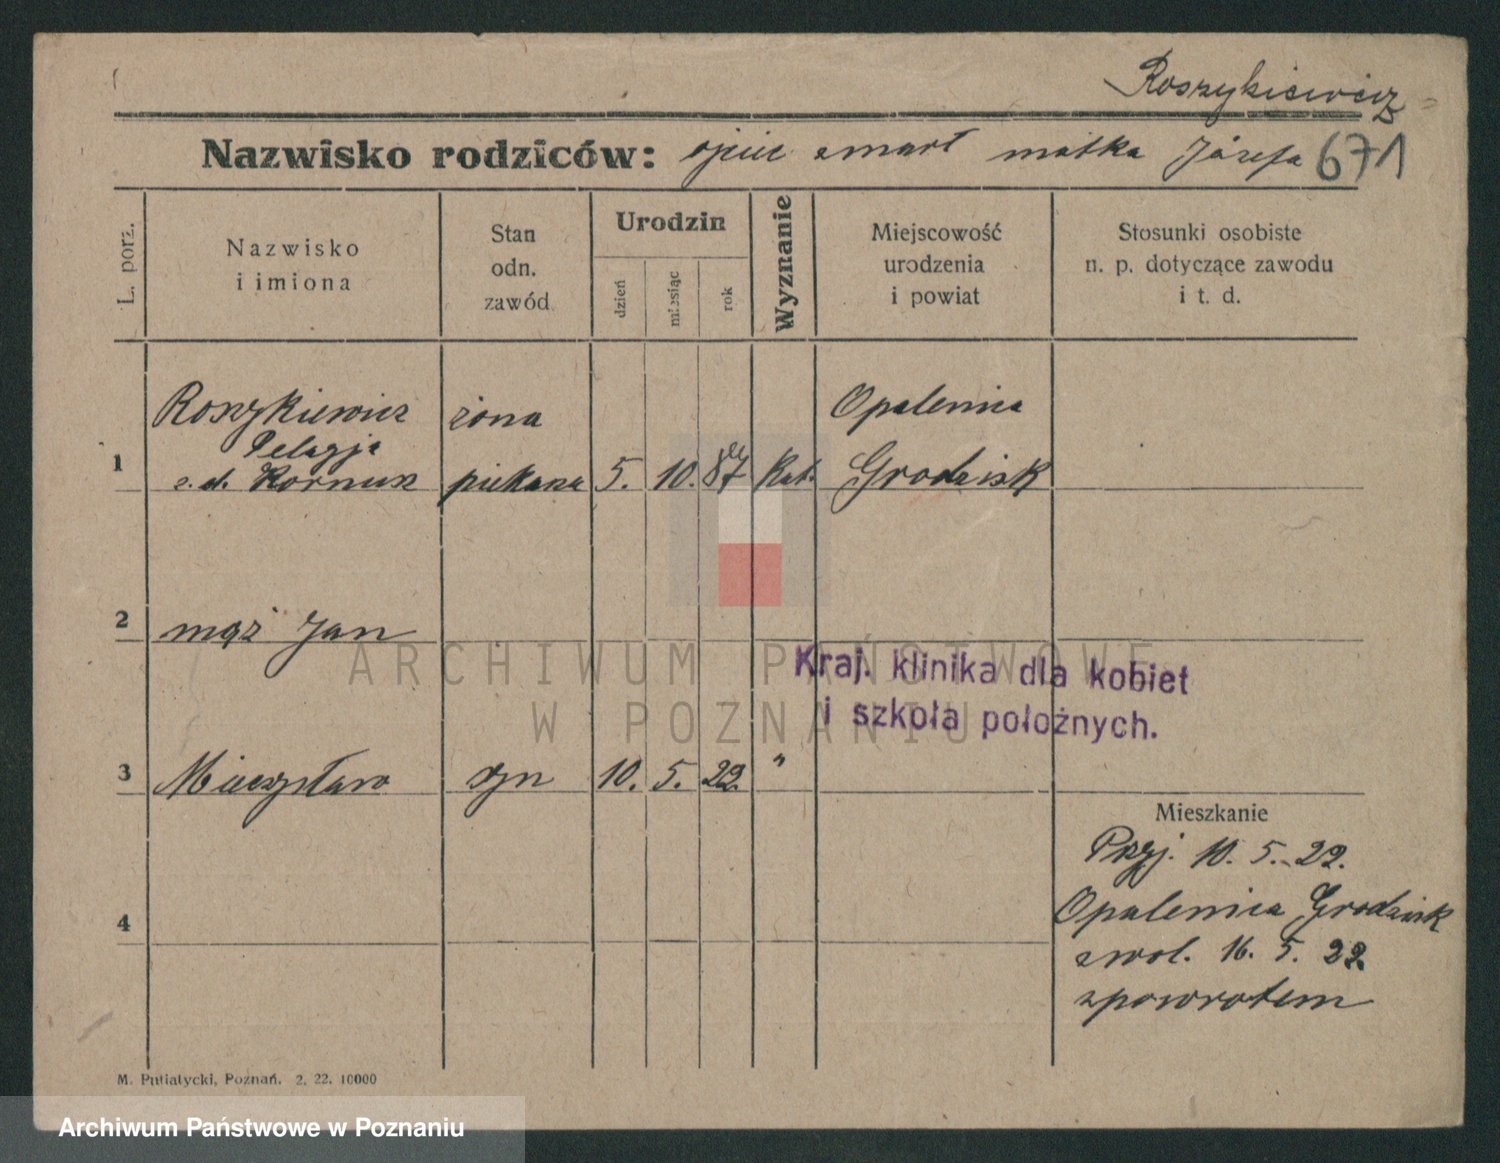 Roszykiewicz
Nazwisko rodziców: ojciec zmarł matka Józefa 671
L. porz.
Nazwisko
i imiona
Stan
odn.
zawód
Urodzin
dzień
miesiąc
rok
Wyznanie
Miejscowość
urodzenia
i powiat
Stosunki osobiste
n. p. dotyczące zawodu
i t. d.
Roszykiewicz żona Opalenica
Pelagja
1 z. d. piekarza 5. 10. 87 Kat. Grodzisk
2 mąż Jan
ARCHIWUM PAŃSTWOWE
W POZNANIU
Kraj. klinika dla kobiet
i szkoła położnych.
3 Mieczysław syn 10. 5. 22. "
Mieszkanie
Przyj. 10. 5. 22.
4 Opalenica Grodzisk
zwol. 16. 5. 22.
zpowrotem
M. Putiatycki, Poznań. 2. 22. 10000
Archiwum Państwowe w Poznaniu